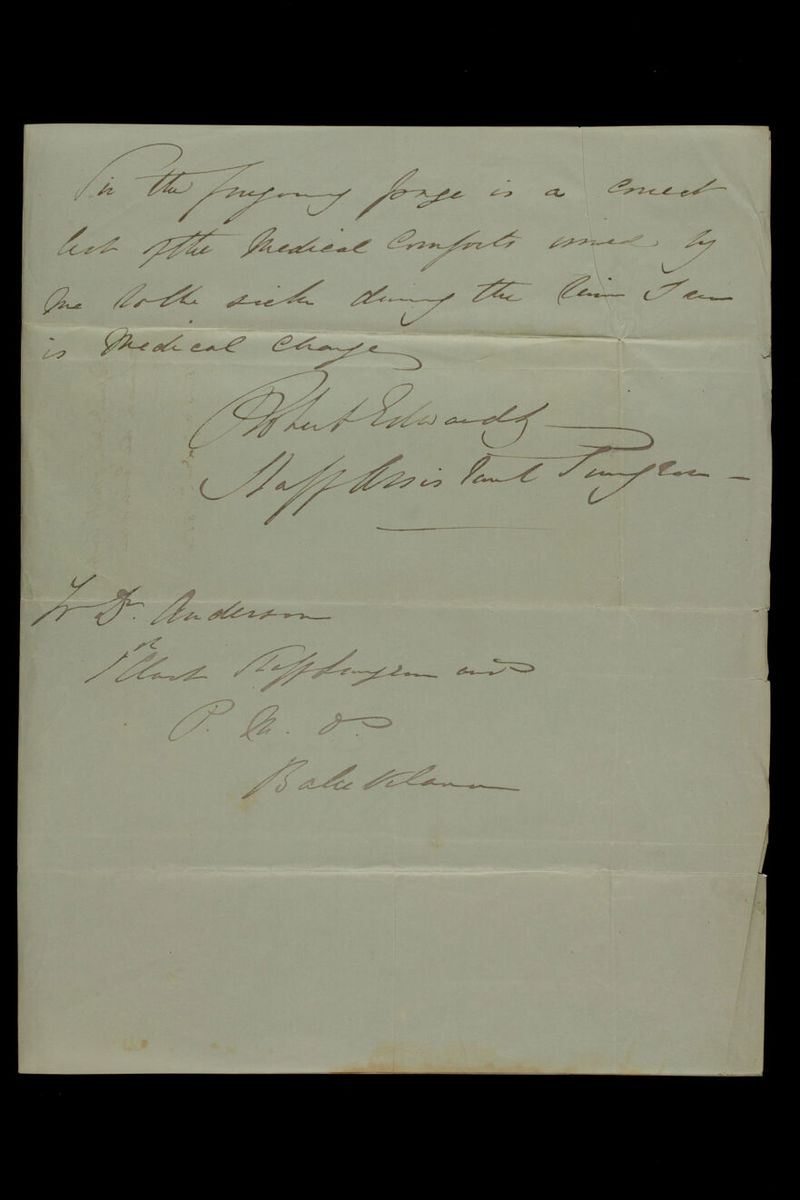 Sir the foregoing page is a correct
list of the Medical Comforts issued by
me to the sick during the time I am
in Medical Charge
Robert Edwards
Staff Assistant Surgeon
To Dr. Anderson
1st Class Staff Surgeon and
P. M. O.
Balaklava